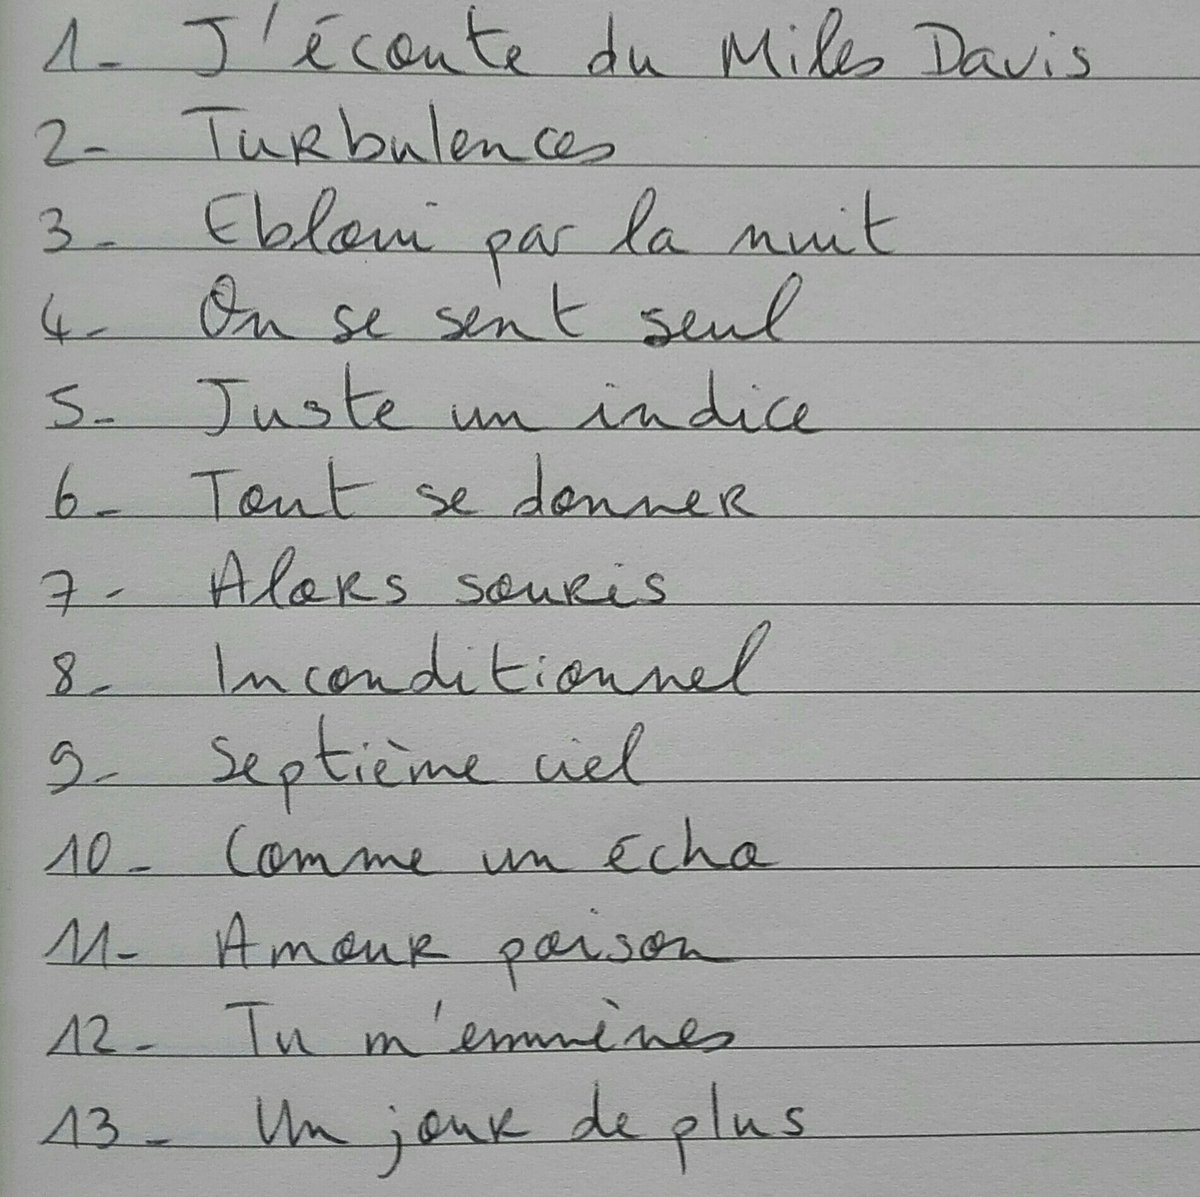 1- J'écoute du Miles Davis
2- Turbulences
3- Ebloui par la nuit
4- On se sent seul
5- Juste un indice
6- Tout se donner
7- Alors souris
8- Inconditionnel
9- Septième ciel
10- Comme un écho
11- Amour poison
12- Tu m'emmènes
13- Un jour de plus